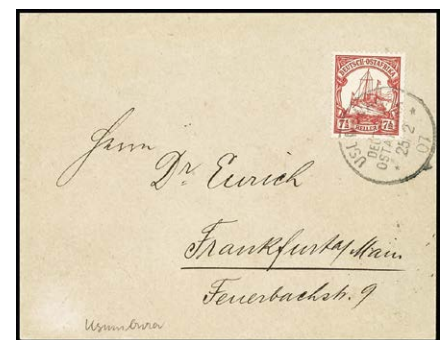 DEUTSCH-OSTAFRIKA
7½ HELLER 7½
25/2
07
Herrn
Dr Eurich
Frankfurt a/Main
Feuerbachstr. 9
Usumbura